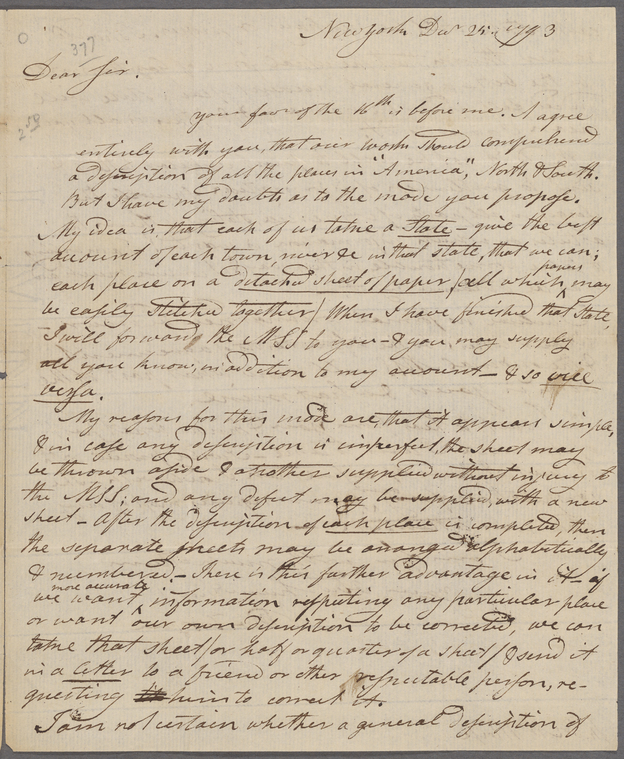 0
377
259
New York Decr 25th 1793
Dear Sir.
your favr of the 16th is before me. I agree
entirely with you, that our work should comprehend
a description of all the places in "America", North & South.
But I have my doubts as to the mode you propose.
My idea is that each of us take a State – give the best
account of each town, river &c in that state, that we can;
each place on a detached sheet of paper / all which papers may
be easily stitched together / When I have finished that State,
I will forward the MSS to you – & you may supply
all you know, in addition to my account – & so vice
versa.
My reasons for this mode are, that it appears simple,
& in case any description is imperfect, the sheet may
be thrown aside & another supplied without injury to
the MSS; and any defect may be supplied, with a new
sheet – After the description of each place is completed, then
the separate sheets may be arranged alphabetically
& numbered – There is this further advantage in it – if
we want more accurate information respecting any particular place
or want our own description to be corrected, we can
take that sheet / or half or quarter of a sheet / & send it
in a letter to a friend or other respectable person, re-
questing him to correct it.
I am not certain whether a general description of